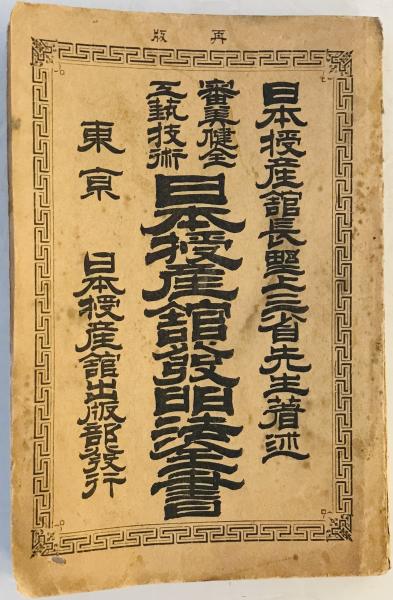 再版
日本授産館長野上三省先生著述
審美健全
工執技術
日本授産館発明法全書
東京
日本授産館出版部發行